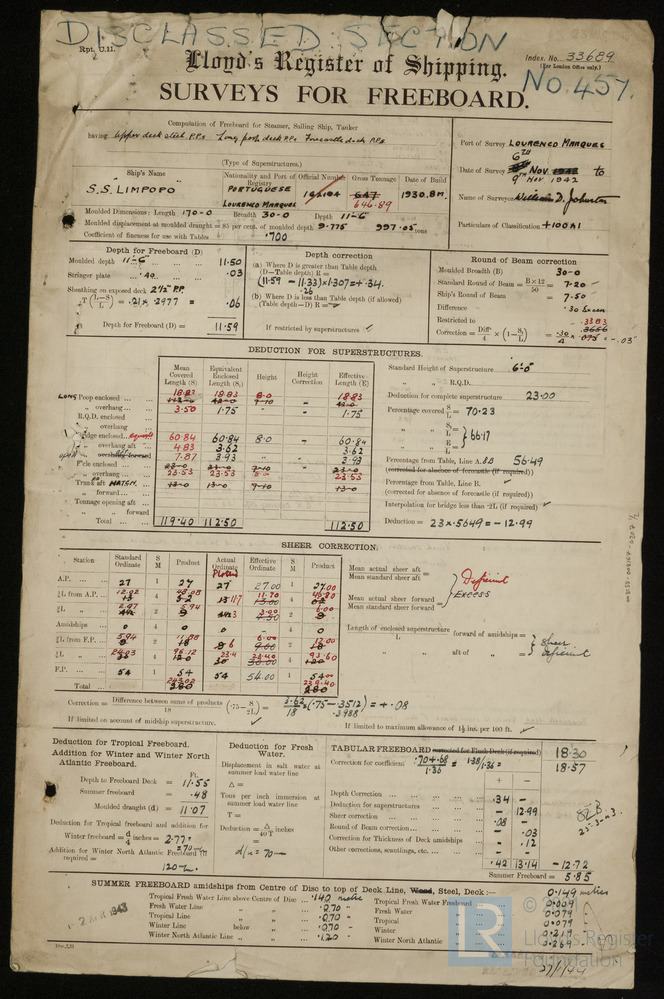 DISCLASSED SECTION
Rpt. C.11.
Index. No. 33689
(For London Office only.)
Lloyd's Register of Shipping.
No. 457.
SURVEYS FOR FREEBOARD.
Computation of Freeboard for Steamer, Sailing Ship, Tanker
having Upper deck steel P.P.s Long poop deck P.Ps Forecastle deck P.Ps
(Type of Superstructures.)
Port of Survey LOURENCO MARQUES
Date of Survey 6TH Nov to 9TH Nov 1942
Name of Surveyor William D. Johnston
Particulars of Classification +100A1
Ship's Name
Nationality and Port of Registry
Official Number
Gross Tonnage
Date of Build
S.S. LIMPOPO
PORTUGUESE
LOURENCO MARQUES
647
646.89
1930.8m.
Moulded Dimensions: Length 170-0 Breadth 30-0 Depth 11-6
Moulded displacement at moulded draught = 85 per cent. of moulded depth 9.775 997.05 tons
Coefficient of fineness for use with Tables .700
Depth for Freeboard (D)
Moulded depth 11-6 11.50
Stringer plate .40 .03
Sheathing on exposed deck 2½" P.P.
T(L-S/L) = .21 x .2977 = .06
Depth for Freeboard (D) = 11.59
Depth correction
(a) Where D is greater than Table depth
(D—Table depth) R =
(11.59 - 11.33) x 1.307 = +.34
.26
(b) Where D is less than Table depth (if allowed)
(Table depth—D) R =
If restricted by superstructures
Round of Beam correction
Moulded Breadth (B) 30-0
Standard Round of Beam = B×12/50 = 7.20
Ship's Round of Beam = 7.50
Difference .30 Excess
Restricted to .3383
Correction = Diff/4 × (1-S/L) = .30/4 = -.03
DEDUCTION FOR SUPERSTRUCTURES.
Mean Covered Length (S)
Equivalent Enclosed Length (S₁)
Height
Height Correction
Effective Length (E)
LONG Poop enclosed 18.83 18.83 8.0 - 18.83
„ overhang 3.50 1.75 - 1.75
R.Q.D. enclosed
„ overhang
Bridge enclosed 60.84 60.84 8.0 - 60.84
„ overhang aft 4.83 3.62 3.62
„ overhang forward 7.87 3.93 3.93
F'cle enclosed 23-0 23-0 7-10 23-0
„ overhang 23.53 23.53 8.0 23.53
Trunk aft HATCH. 13-0 13-0 7-10 13-0
„ forward
Tonnage opening aft
„ „ forward
Total 119.40 112.50 112.50
Standard Height of Superstructure 6'-0"
„ „ R.Q.D.
Deduction for complete superstructure 23.00
Percentage covered S/L = 70.23
S₁/L =
E/L = } 66.17
Percentage from Table, Line A. 56.49
(corrected for absence of forecastle (if required))
Percentage from Table, Line B.
(corrected for absence of forecastle (if required))
Interpolation for bridge less than ·2L (if required)
Deduction = 23 x .5649 = - 12.99
SHEER CORRECTION.
Station
Standard Ordinate
S M
Product
Actual Ordinate
Effective Ordinate
S M
Product
A.P. 27 1 27 27 27.00 1 27.00
⅙L from A.P. 12.02 4 48.08 11.7 11.70 4 46.80
⅓L „ 2.97 2 5.94 3 3.00 2 6.00
Amidships 0 4 0 0 - 4 0
⅓L from F.P. 5.94 2 11.88 6 6.00 2 12.00
⅙L „ 24.03 4 96.12 23.4 23.40 4 93.60
F.P. 54 1 54 54 54.00 1 54.00
Total 243.02 239.40
Mean actual sheer aft
Mean standard sheer aft = Deficient
Mean actual sheer forward
Mean standard sheer forward = Excess
Length of enclosed superstructure
L
forward of amidships =
„ aft of „ =
Sheer deficient
Correction = Difference between sums of products / 18 (·75 - S/2L) = 3.62/18 (.75 - .3512) = + .08
.3988
If limited on account of midship superstructure.
If limited to maximum allowance of 1½ ins. per 100 ft.
Deduction for Tropical Freeboard.
Addition for Winter and Winter North Atlantic Freeboard.
Ft.
Depth to Freeboard Deck = 11.55
Summer freeboard = .48
Moulded draught (d) = 11.07
Deduction for Tropical freeboard and addition for
Winter freeboard = d/4 inches = 2.77"
Addition for Winter North Atlantic Freeboard (if required) =
Deduction for Fresh Water.
Displacement in salt water at summer load water line
Δ =
Tons per inch immersion at summer load water line
T =
Deduction = Δ/40T inches
=
TABULAR FREEBOARD corrected for Flush Deck (if required) 18.30
Correction for coefficient .70+.68/1.36 = 1.38/1.36 = 18.57
+ -
Depth Correction .34 -
Deduction for superstructures - 12.99
Sheer correction .08 -
Round of Beam correction - .03
Correction for Thickness of Deck amidships - .12
Other corrections, scantlings, etc. - -
.42 13.14 -12.72
Summer Freeboard = 5.85
23-3-43
SUMMER FREEBOARD amidships from Centre of Disc to top of Deck Line, Wood, Steel, Deck:— 0.149 metres
Tropical Fresh Water Line above Centre of Disc .140 metre
Fresh Water Line „ „ .070
Tropical Line „ „ .070
Winter Line below „ .070
Winter North Atlantic Line „ „ .120
Tropical Fresh Water Freeboard 0.009
Fresh Water „ 0.079
Tropical „ 0.079
Winter „ 0.219
Winter North Atlantic „ 0.269
27/1/44
© 2021
LR
Lloyd's Register
Foundation